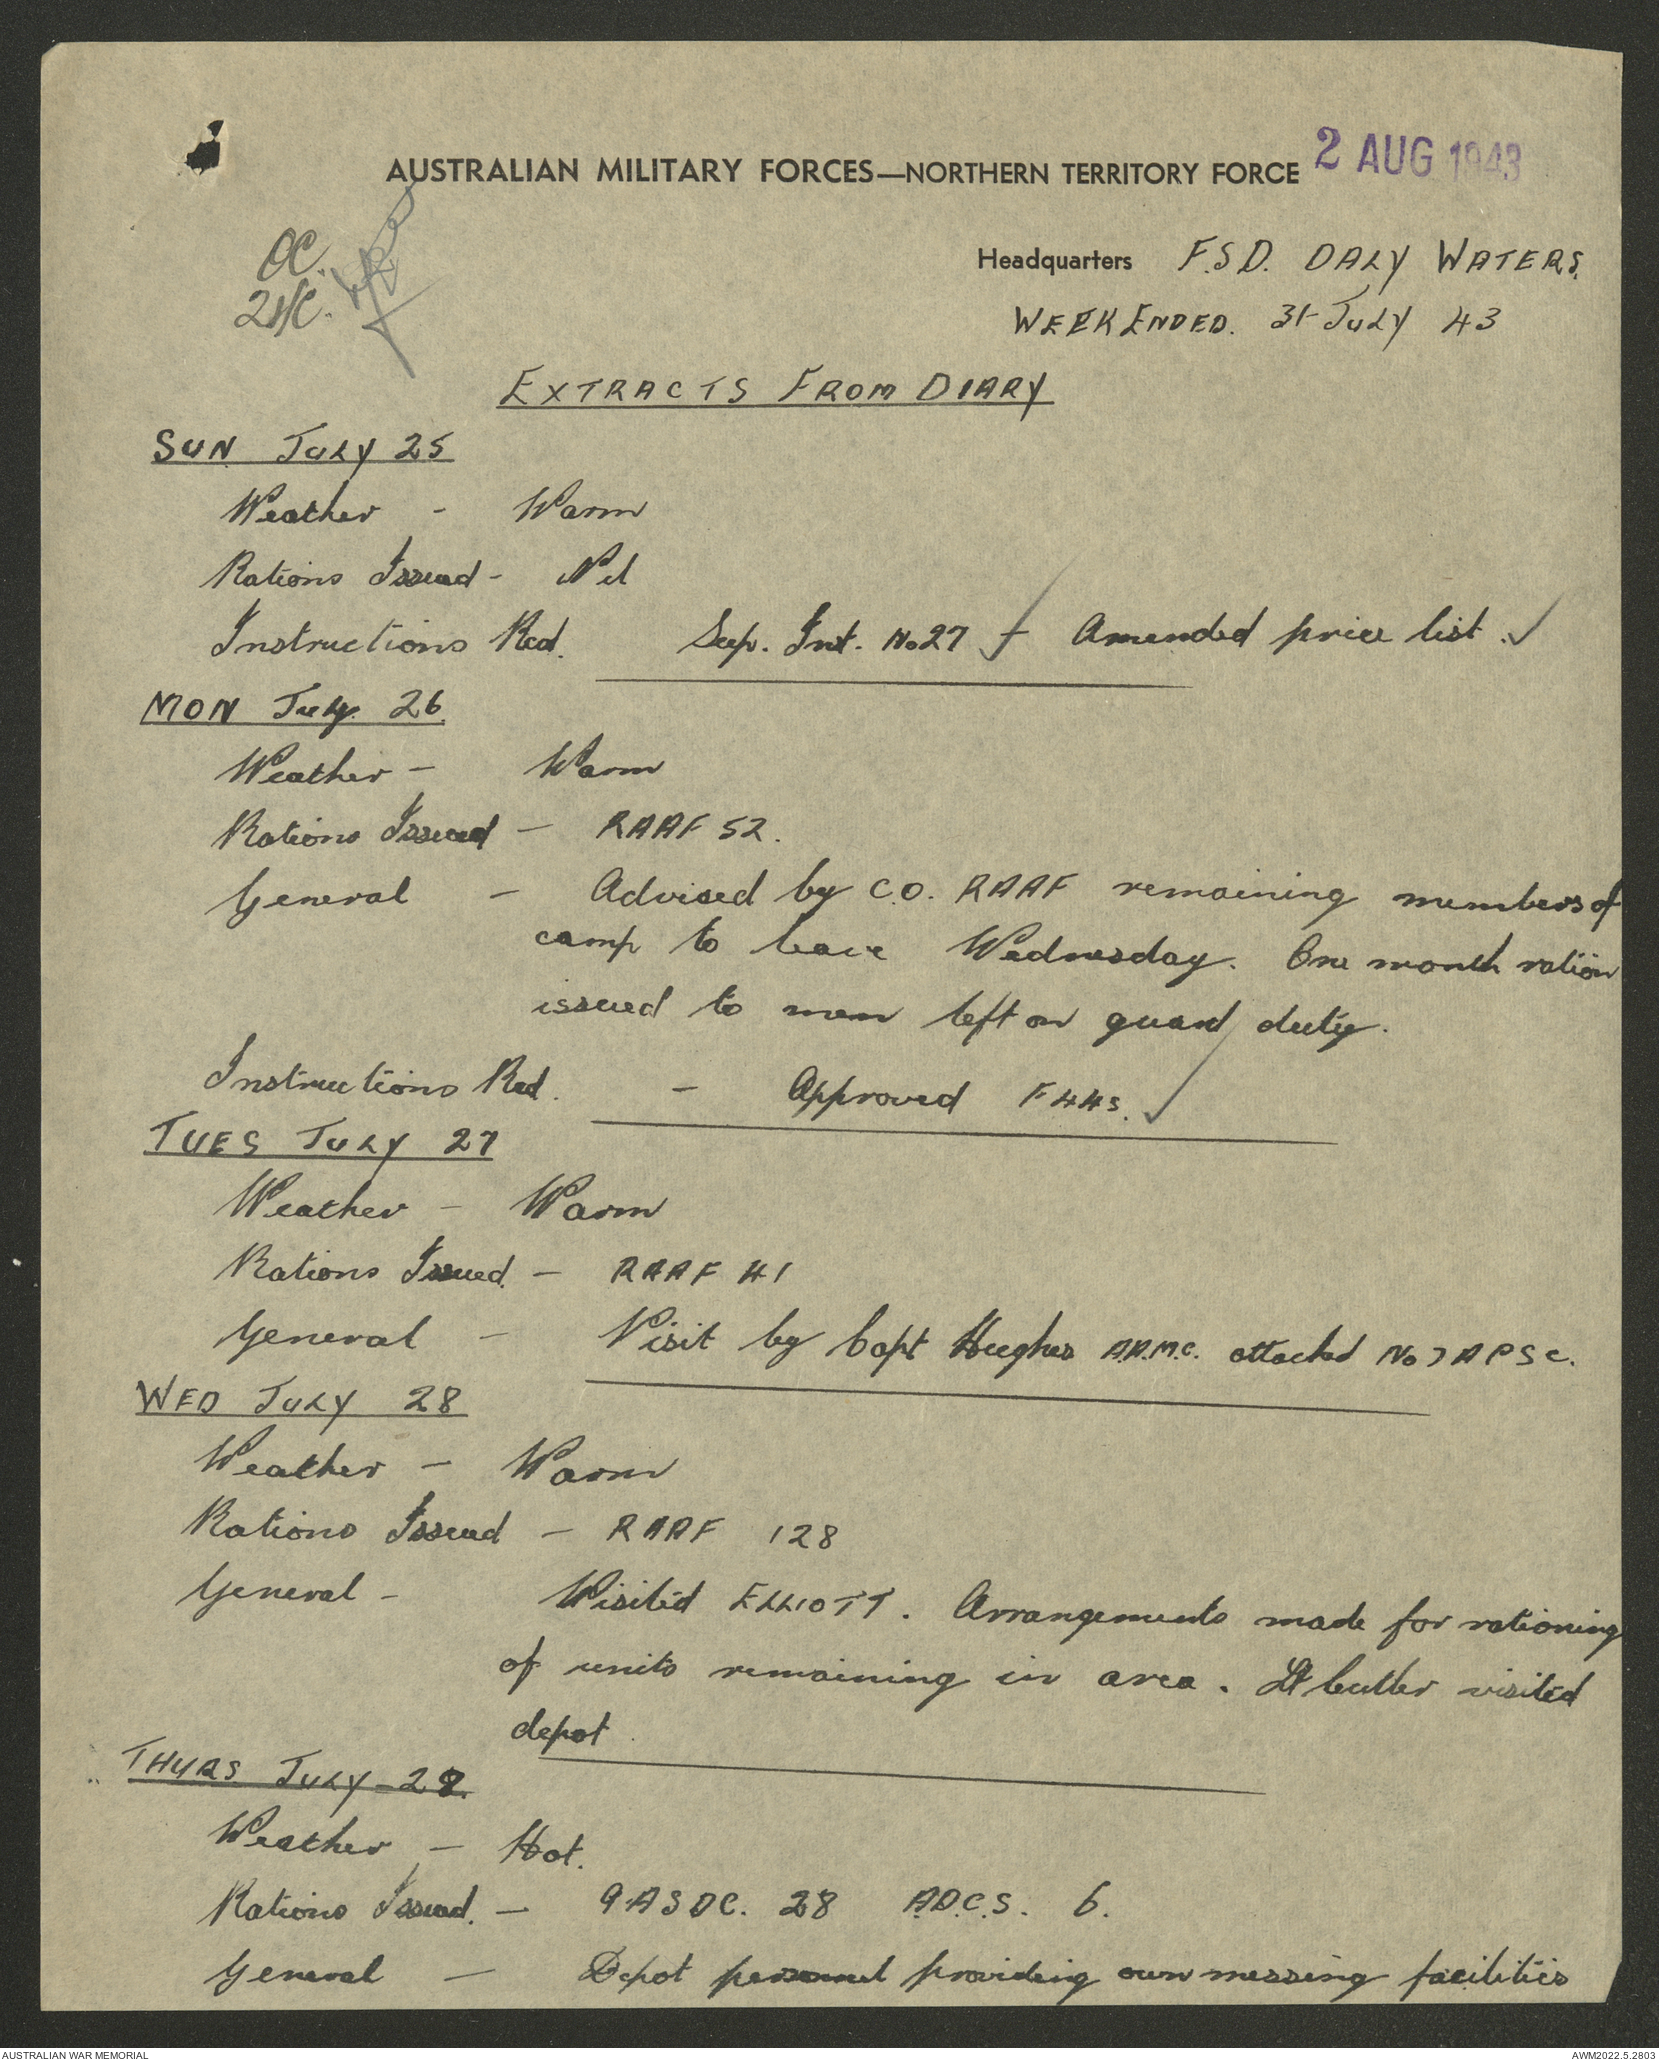 2 AUG 1943
AUSTRALIAN MILITARY FORCES—NORTHERN TERRITORY FORCE
OC.
2i/c.
Headquarters F.S.D. DALY WATERS.
WEEK ENDED. 31 JULY 43
EXTRACTS FROM DIARY
SUN JULY 25
Weather - Warm
Rations Issued - Nil
Instructions Recd. Sup. Inst. No 27 + Amended price list.
MON July 26
Weather - Warm
Rations Issued - RAAF 52.
General - Advised by C.O. RAAF remaining members of
camp to leave Wednesday. One month ration
issued to men left on guard duty.
Instructions Recd. - Approved F44s.
TUES JULY 27
Weather - Warm
Rations Issued. - RAAF 41
General - Visit by Capt Hughes A.A.M.C. attached No 7 APSC.
WED JULY 28
Weather - Warm
Rations Issued - RAAF 128
General - Visited ELLIOTT. Arrangements made for rationing
of units remaining in area. Lt Cutler visited
depot.
THURS JULY 29.
Weather - Hot.
Rations Issued. - 9 ASDC. 28 A.D.C.S. 6.
General - Depot personnel providing own messing facilities
AUSTRALIAN WAR MEMORIAL
AWM2022.5.2803